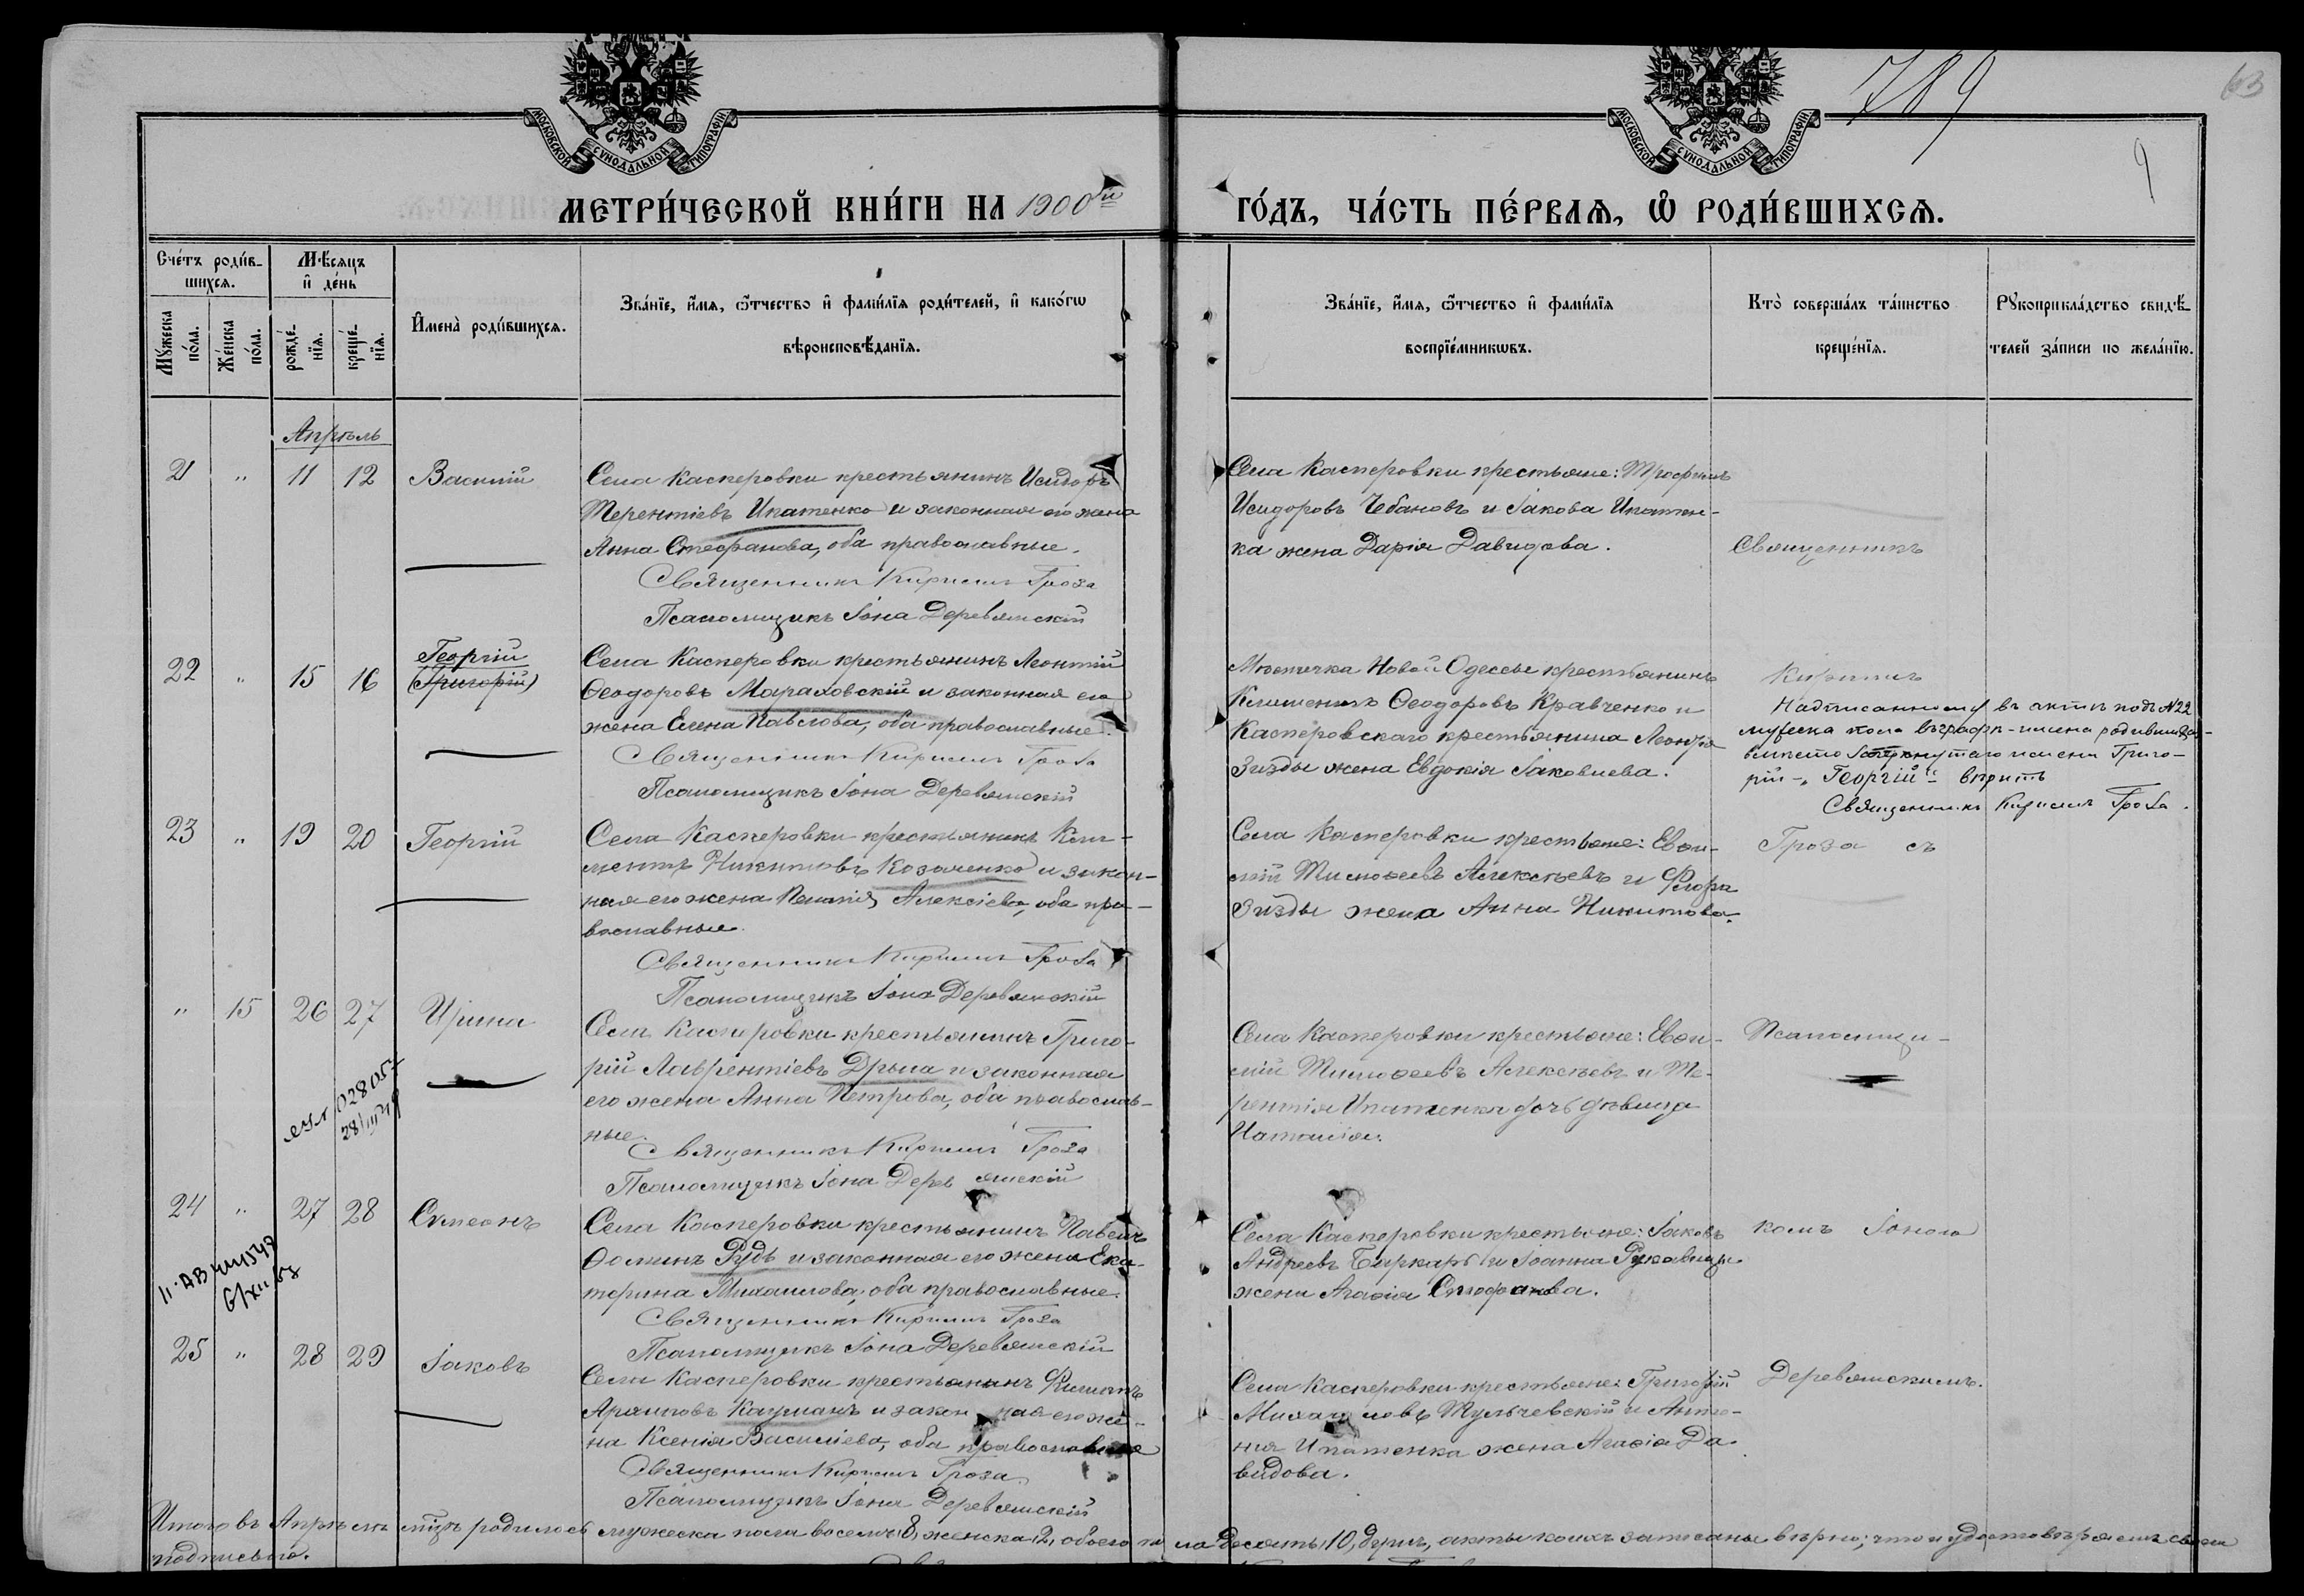 789
63
9
МОСКОВСКОЙ СУНОДАЛЬНОЙ ТИПОГРАФІИ
МОСКОВСКОЙ СУНОДАЛЬНОЙ ТИПОГРАФІИ
МЕТРИ́ЧЕСКОЙ КНИ́ГИ НА 1900й
ГО́ДЪ, ЧА́СТЬ ПЕ́РВАѦ, Ѡ РОДИ́ВШИХСѦ.
Сче́тъ роди́в-
шихсѧ.
Мѣ́сѧцъ
и҆ де́нь
Мꙋ́жеска
по́ла.
Же́нска
по́ла.
рожде́-
нїѧ.
креще́-
нїѧ.
И҆мена̀ роди́вшихсѧ.
Зва́нїе, и҆́мѧ, ѻ҆́тчество и҆ фами́лїѧ роди́телей, и҆ како́гѡ
вѣроисповѣ́данїѧ.
Зва́нїе, и҆́мѧ, ѻ҆́тчество и҆ фами́лїѧ
воспрїе́мникѡвъ.
Кто̀ соверша́лъ та́инство
креще́нїѧ.
Рꙋкоприкла́дство свидѣ́-
телей за́писи по жела́нїю.
Апрѣль
21 " 11 12 Василій
Села Касперовки крестьянинъ Исидоръ
Терентіевъ Ипатенко и законная его жена
Анна Стефанова, оба православные.
Священникъ Кириллъ Гроза
Псаломщикъ Іона Деревянскій
Села Касперовки крестьяне: Трофимъ
Исидоровъ Чебановъ и Іакова Ипатен-
ка жена Дарія Давидова.
Священникъ
22 " 15 16 Георгій
(Григорій)
Села Касперовки крестьянинъ Леонтій
Ѳеодоровъ Мараховскій и законная его
жена Елена Павлова, оба православные.
Священникъ Кириллъ Гроза
Псаломщикъ Іона Деревянскій
Мѣстечка Новой Одессы крестьянинъ
Климентъ Ѳеодоровъ Кравченко и
Касперовскаго крестьянина Леонтія
Зизды жена Евдокія Іаковлева.
Кириллъ
Надписанному въ актѣ подъ №22
мужеска пола въ графѣ - имена родившихся -
вмѣсто зачеркнутаго имени Григо-
рій - "Георгій" - вѣрить
Священникъ Кириллъ Гроза.
23 " 19 20 Георгій
Села Касперовки крестьянинъ Кли-
ментъ Никитовъ Козаченко и закон-
ная его жена Пелагія Алексіева, оба пра-
вославные.
Священникъ Кириллъ Гроза
Псаломщикъ Іона Деревянскій
Села Касперовки крестьяне: Евѳи-
мій Тимоѳеевъ Алексѣевъ и Флора
Зизды жена Анна Никитова.
Гроза съ
" 15 26 27 Ирина
Села Касперовки крестьянинъ Григо-
рій Лаврентіевъ Дрыга и законная
его жена Анна Петрова, оба православ-
ные.
Священникъ Кириллъ Гроза
Псаломщикъ Іона Деревянскій
Села Касперовки крестьяне: Евѳи-
мій Тимоѳеевъ Алексѣевъ и Те-
рентія Ипатенка дочь дѣвица
Наталія.
Псаломщи-
028052
24 " 27 28 Сѵмеонъ
Села Касперовки крестьянинъ Павелъ
Ѳоминъ Рудь и законная его жена Ека-
терина Михаилова, оба православные.
Священникъ Кириллъ Гроза
Псаломщикъ Іона Деревянскій
Села Касперовки крестьяне: Іаковъ
Андреевъ Биркарь и Іоанна Рукавицы
жена Агаѳія Стефанова.
комъ Іоною
25 " 28 29 Іаковъ
Села Касперовки крестьянинъ Филиппъ
Архиповъ Кацманъ и законная его же-
на Ксенія Василіева, оба православные
Священникъ Кириллъ Гроза
Псаломщикъ Іона Деревянскій
Села Касперовки крестьяне: Григорій
Михаиловъ Тульчевскій и Анто-
нія Ипатенка жена Агаѳія Да-
видова.
Деревянскимъ.
Итого въ Апрѣлѣ мѣсяцѣ родилось мужеска пола восемь, 8, женска 2, обоего пола десять, 10, душъ, акты коихъ записаны вѣрно; что и удостовѣряемъ своею
подписью.